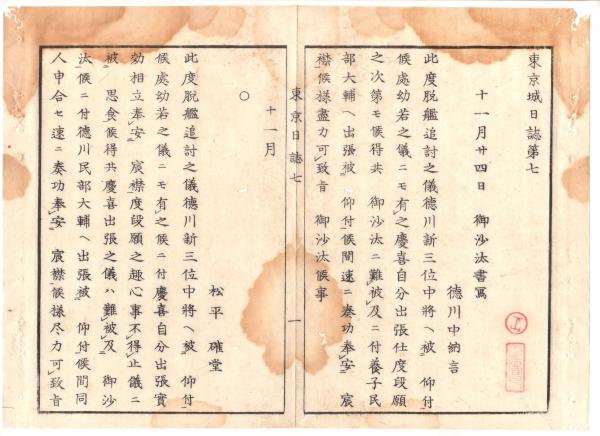 東京城日誌第七
十一月廿四日　御沙汰書写
徳川中納言
此度脱艦追討之儀徳川新三位中将ヘ被　仰付
候処幼若之儀ニモ有之慶喜自分出張仕度段願
之次第モ候得共　御沙汰ニ難被及ニ付養子民
部大輔ヘ出張被　仰付候間速ニ奏功奉安　宸
襟候様尽力可致旨　御沙汰候事
東京日誌七
一
十一月
○
松平　確堂
此度脱艦追討之儀徳川新三位中将ヘ被　仰付
候処幼若之儀ニモ有之候ニ付慶喜自分出張実
効相立奉安　宸襟度段願之趣心事不得止儀ニ
被　思食候得共慶喜出張之儀ハ難被及　御沙
汰候ニ付徳川民部大輔ヘ出張被　仰付候間同
人申合セ速ニ奏功奉安　宸襟候様尽力可致旨